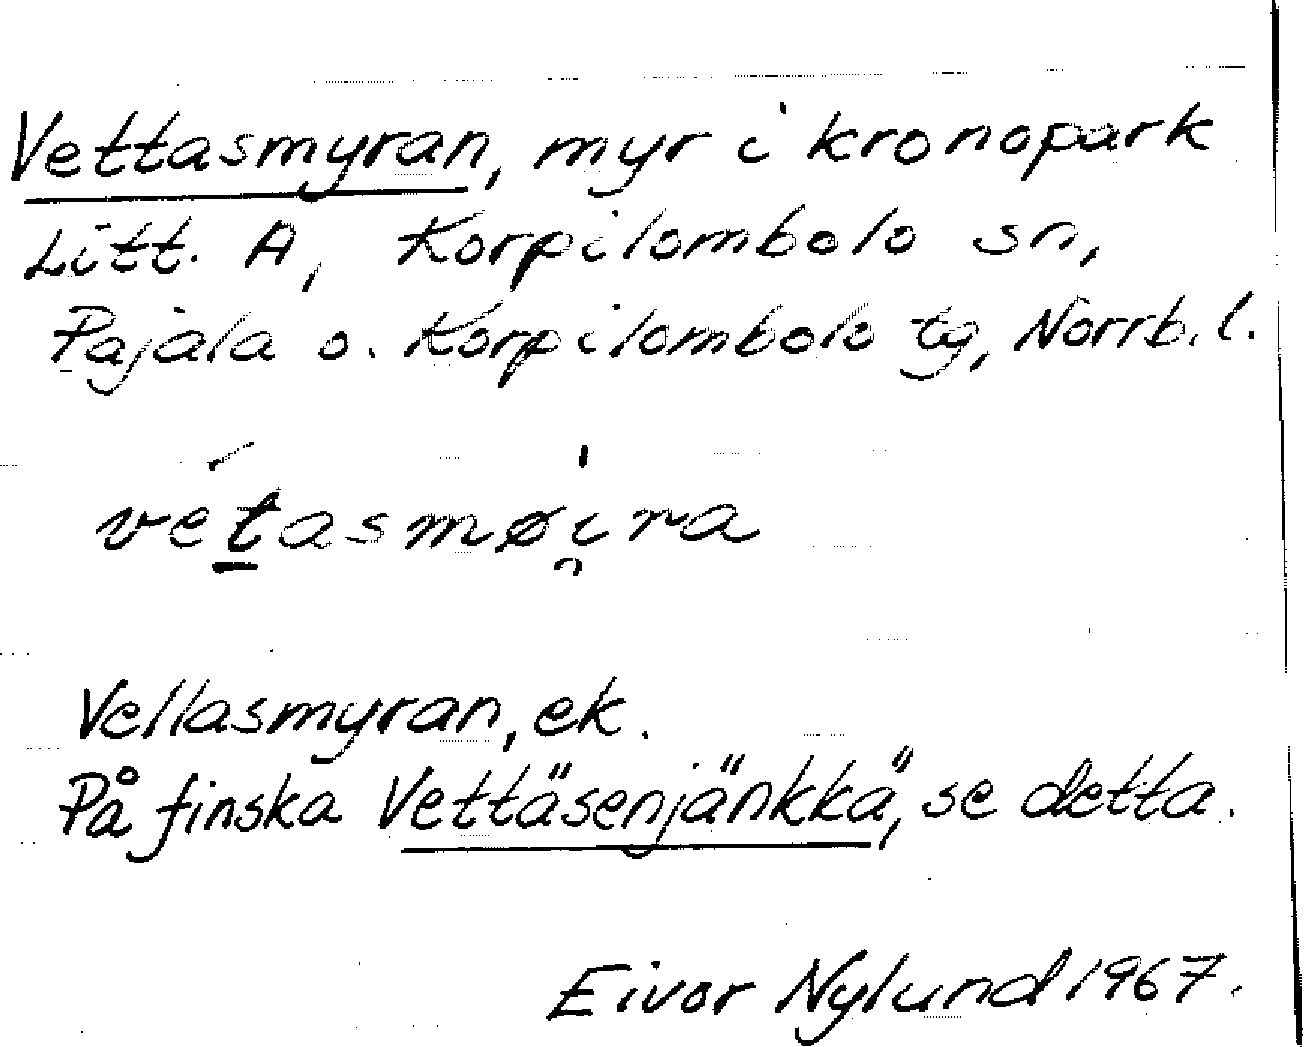 Vettasmyran, myr i kronopark
Litt. A, Korpilombolo sn,
Pajala o. Korpilombolo tg, Norrb. l.
vét̲asmøi̯ra
Vellasmyran, ek.
På finska Vettäsenjänkkä, se detta.
Eivor Nylund 1967.